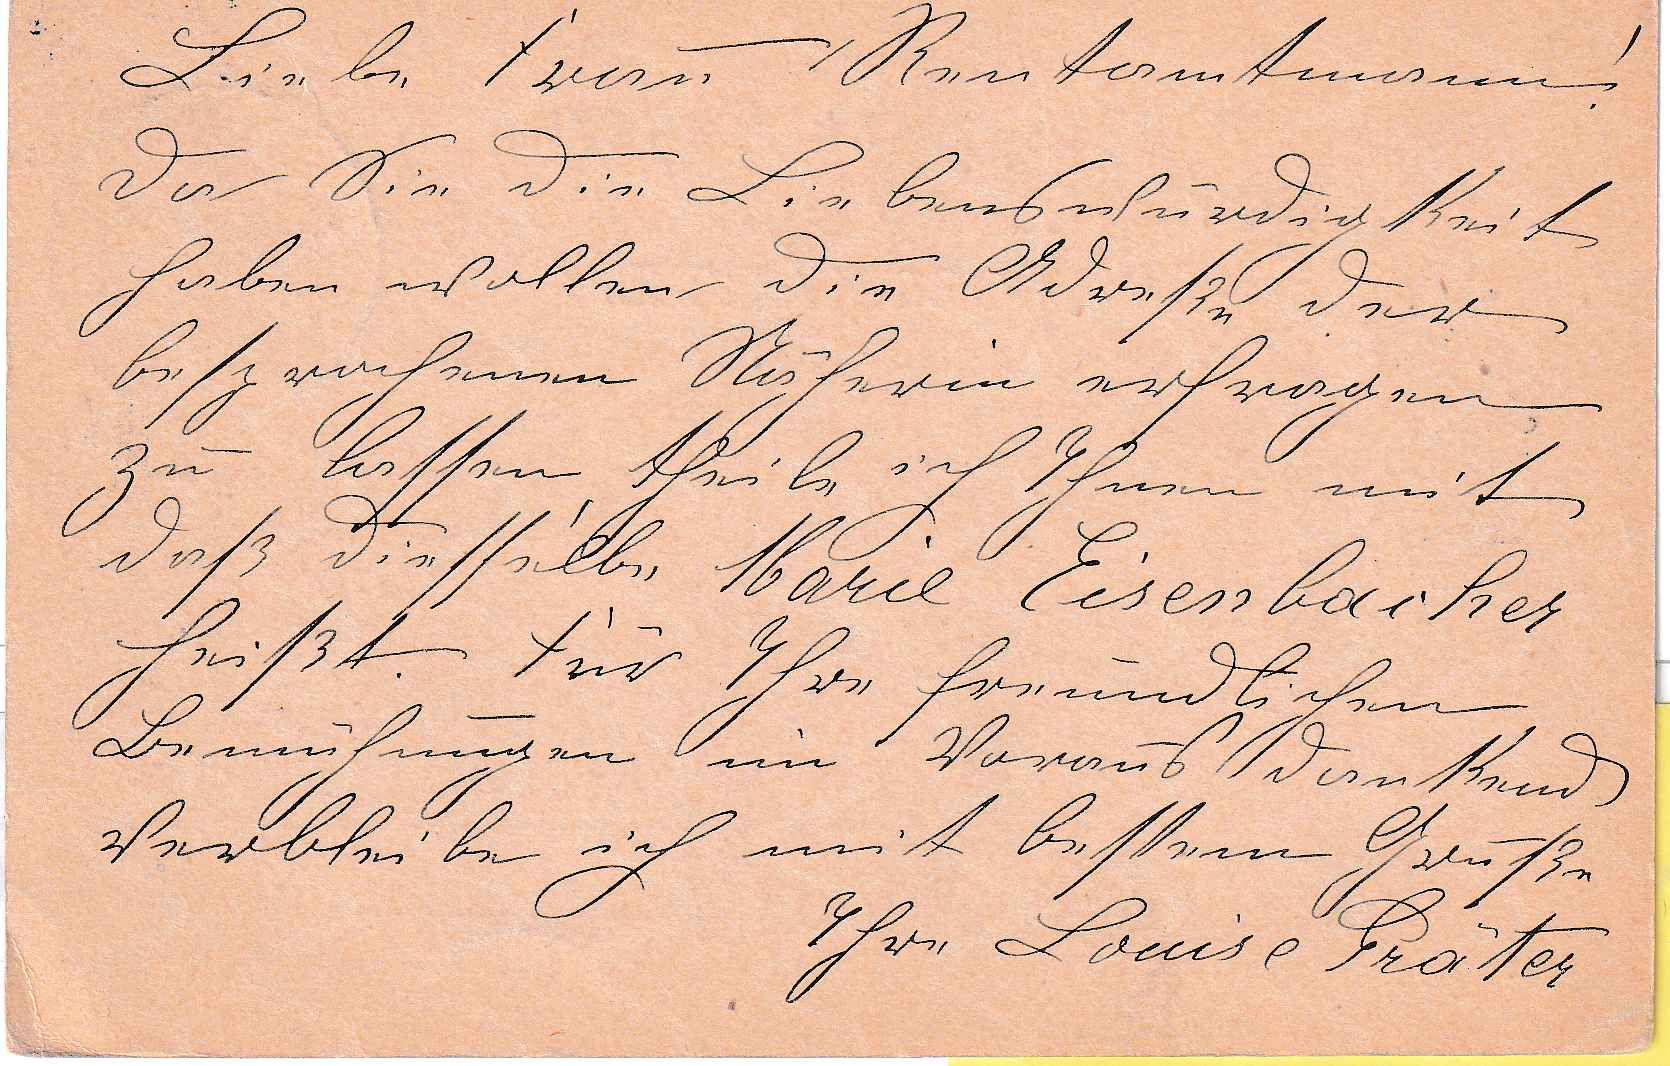 Liebe Frau Rentamtmann!
Da Sie die Liebenswürdigkeit
haben wollen die Adreße der
besprochenen Näherin erfragen
zu lassen theile ich Ihnen mit
daß diesselbe Marie Eisenbacher
heißt. Für Ihre freundlichen
Bemühungen im Voraus dankend
verbleibe ich mit bestem Gruße
Ihre Louise Präter